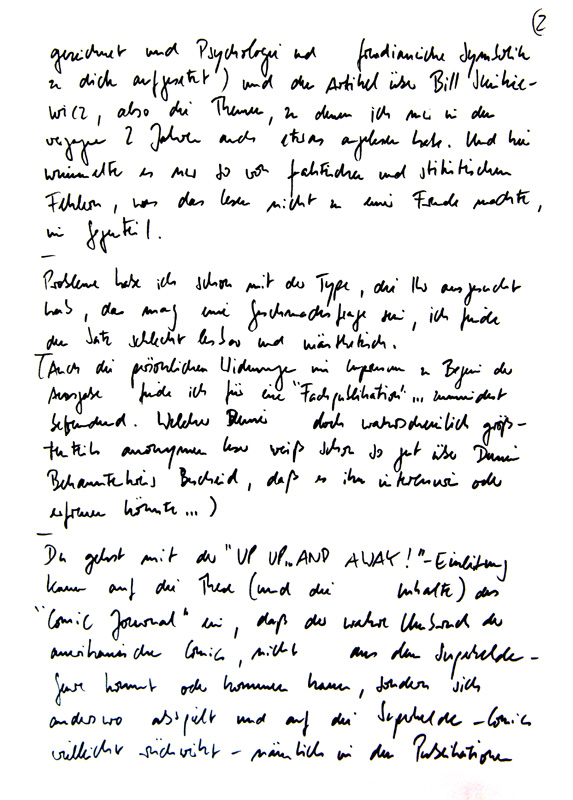 ②
gezeichnet und Psychologie und freudianische Symbolik
zu dick aufgesetzt) und der Artikel über Bill Sienkie-
wicz, also die Themen, zu denen ich mir in den
vergangen 2 Jahren auch etwas angelesen habe. Und hier
wimmelte es nur so von faktischen und stilistischen
Fehlern, was das lesen nicht zu einer Freude machte,
im Gegenteil.
—
Probleme habe ich schon mit der Type, die Ihr ausgesucht
habt, das mag eine Geschmacksfrage sein, ich finde
den Satz schlecht lesbar und unästhetisch.
(Auch die persönlichen Widmungen im Impressum zu Beginn der
Ausgabe finde ich für eine "Fachpublikation"... zumindest
befremdend. Welcher Deiner doch wahrscheinlich größ-
tenteils anonymen Leser weiß schon so gut über Deinen
Bekanntenkreis Bescheid, daß es ihn interessieren oder
erfreuen könnte...)
—
Du gehst mit der "UP UP.. AND AWAY!"-Einleitung
kaum auf die These (und die Inhalte) des
"Comic Journal" ein, daß der wahre Umbruch der
amerikanischen Comics, nicht aus dem Superhelden-
Genre kommt oder kommen kann, sondern sich
anderswo abspielt und auf die Superhelden-Comics
vielleicht rückwirkt - nämlich in den Publikationen